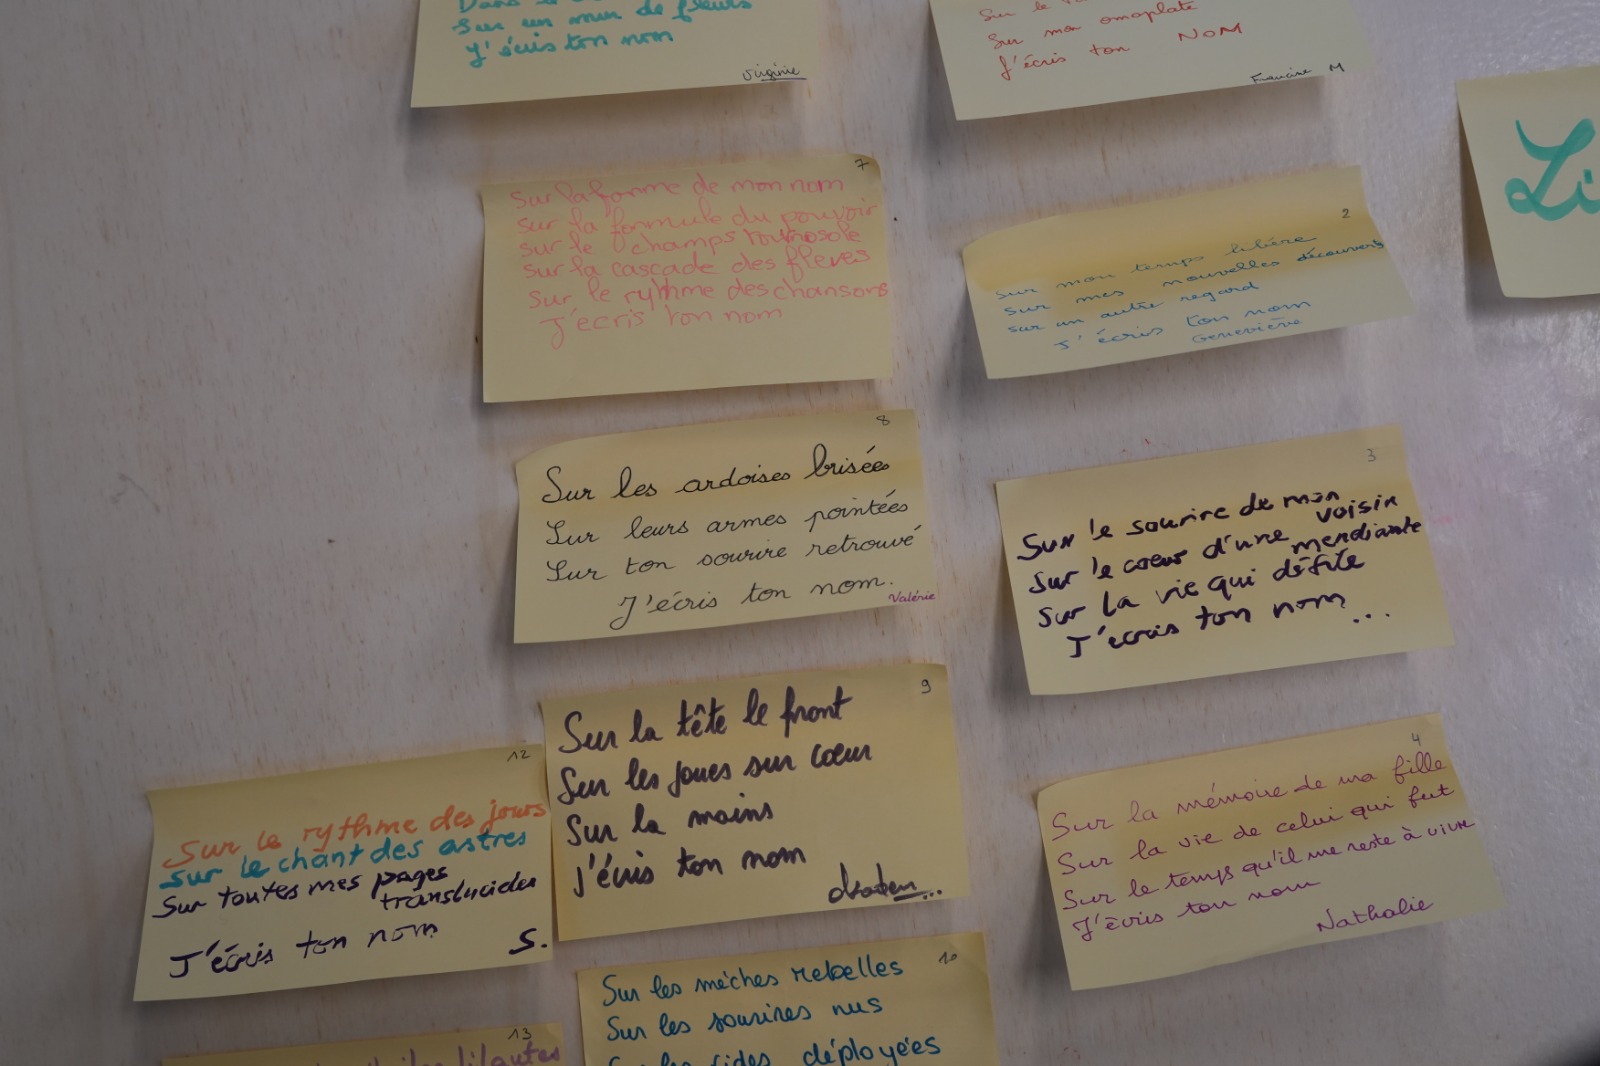 Sur un mur de fleurs
J'écris ton nom
Virginie
Sur le
Sur mon omoplate
J'écris ton NOM
Francine M
Li
7
Sur la forme de mon nom
sur la formule du pouvoir
sur le champs tournosole
sur la cascade des fleves
sur le rythme des chansons
J'ecris ton nom
2
sur mon temps libéré
sur mes nouvelles découvertes
sur un autre regard
J'écris ton nom
Geneviève
8
Sur les ardoises brisées
Sur leurs armes pointées
Sur ton sourire retrouvé
J'écris ton nom.
Valérie
3
Sur le sourire de mon
voisin
Sur le coeur d'une mendiante
Sur la vie qui défile
J'écris ton nom...
9
Sur la tête le front
Sur les joues sur cœur
Sur la mains
j'écris ton nom
4
Sur la mémoire de ma fille
Sur la vie de celui qui fut
Sur le temps qu'il me reste à vivre
J'écris ton nom
Nathalie
12
Sur le rythme des jours
Sur le chant des astres
Sur toutes mes pages
translucides
J'écris ton nom
S.
10
Sur les mèches rebelles
Sur les sourires nus
déployées
13